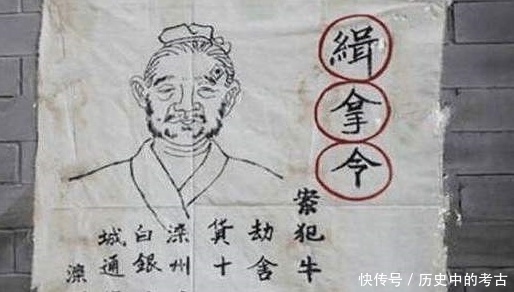 緝拿令
案犯牛
劫舍
貨十
滦州
白銀
城通
滦
快传号/历史中的考古